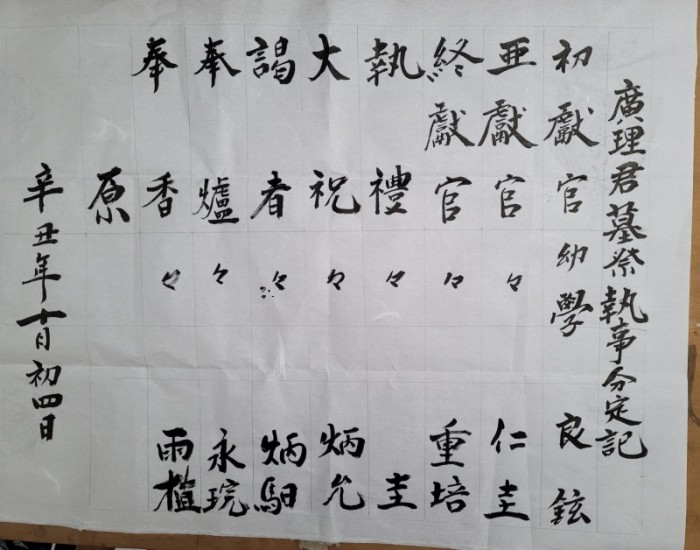 廣理君墓祭執事分定記
初獻官幼學 良鉉
亜獻官 々 仁圭
終獻官 々 重培
執禮 々 圭
大祝 々 炳允
謁者 々 炳馹
奉爐 々 永琓
奉香 々 雨植
原
辛丑年十月初四日